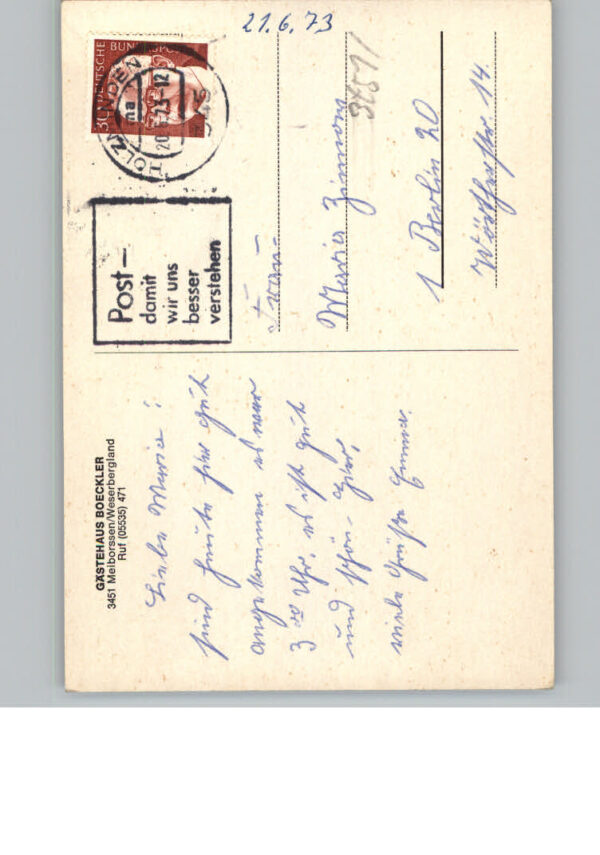 GÄSTEHAUS BOECKLER
3451 Meiborssen/Weserbergland
Ruf (05535) 471
Liebe Maria!
sind heute hier gut
angekommen es war
3 00 Uhr, es ist gut
und schön hier,
viele Grüße Emma
21.6.73
DEUTSCHE BUNDESPOST
30
HOLZMINDEN
Post–
damit
wir uns
besser
verstehen
Frau
Maria
1 Berlin 20
Wörtherstr 14.